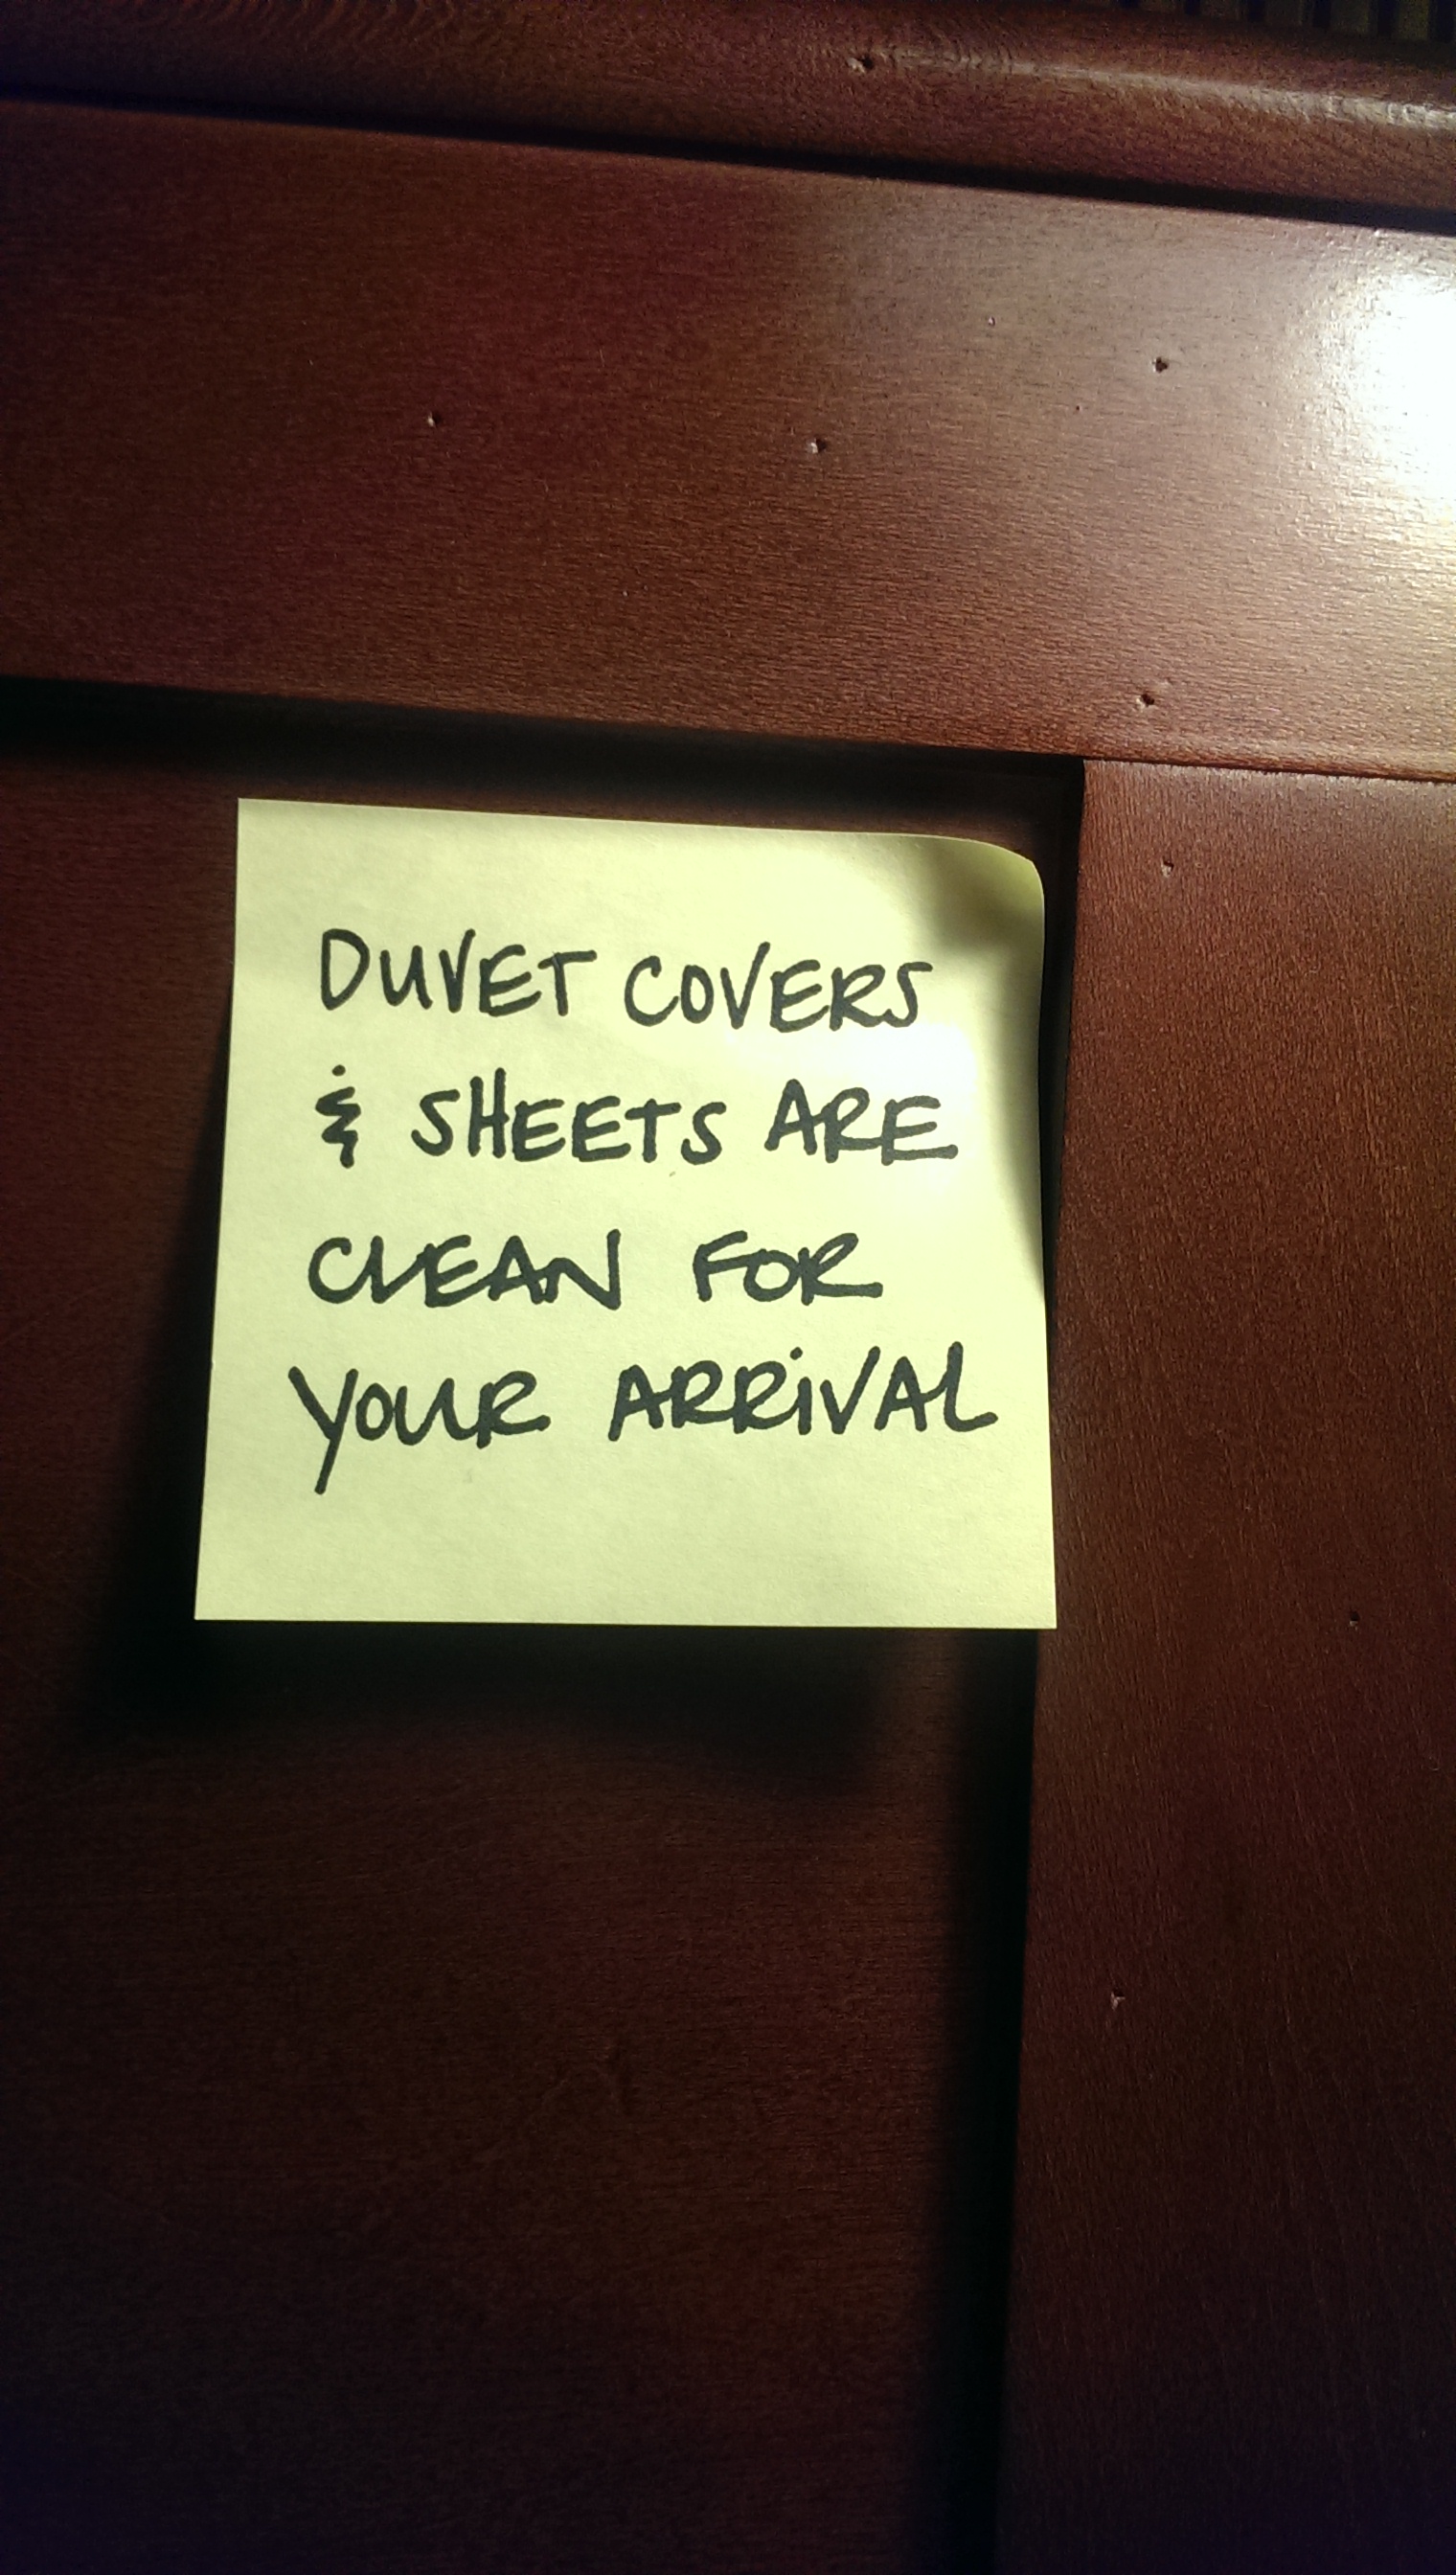 DUVET COVERS
& SHEETS ARE
CLEAN FOR
YOUR ARRIVAL